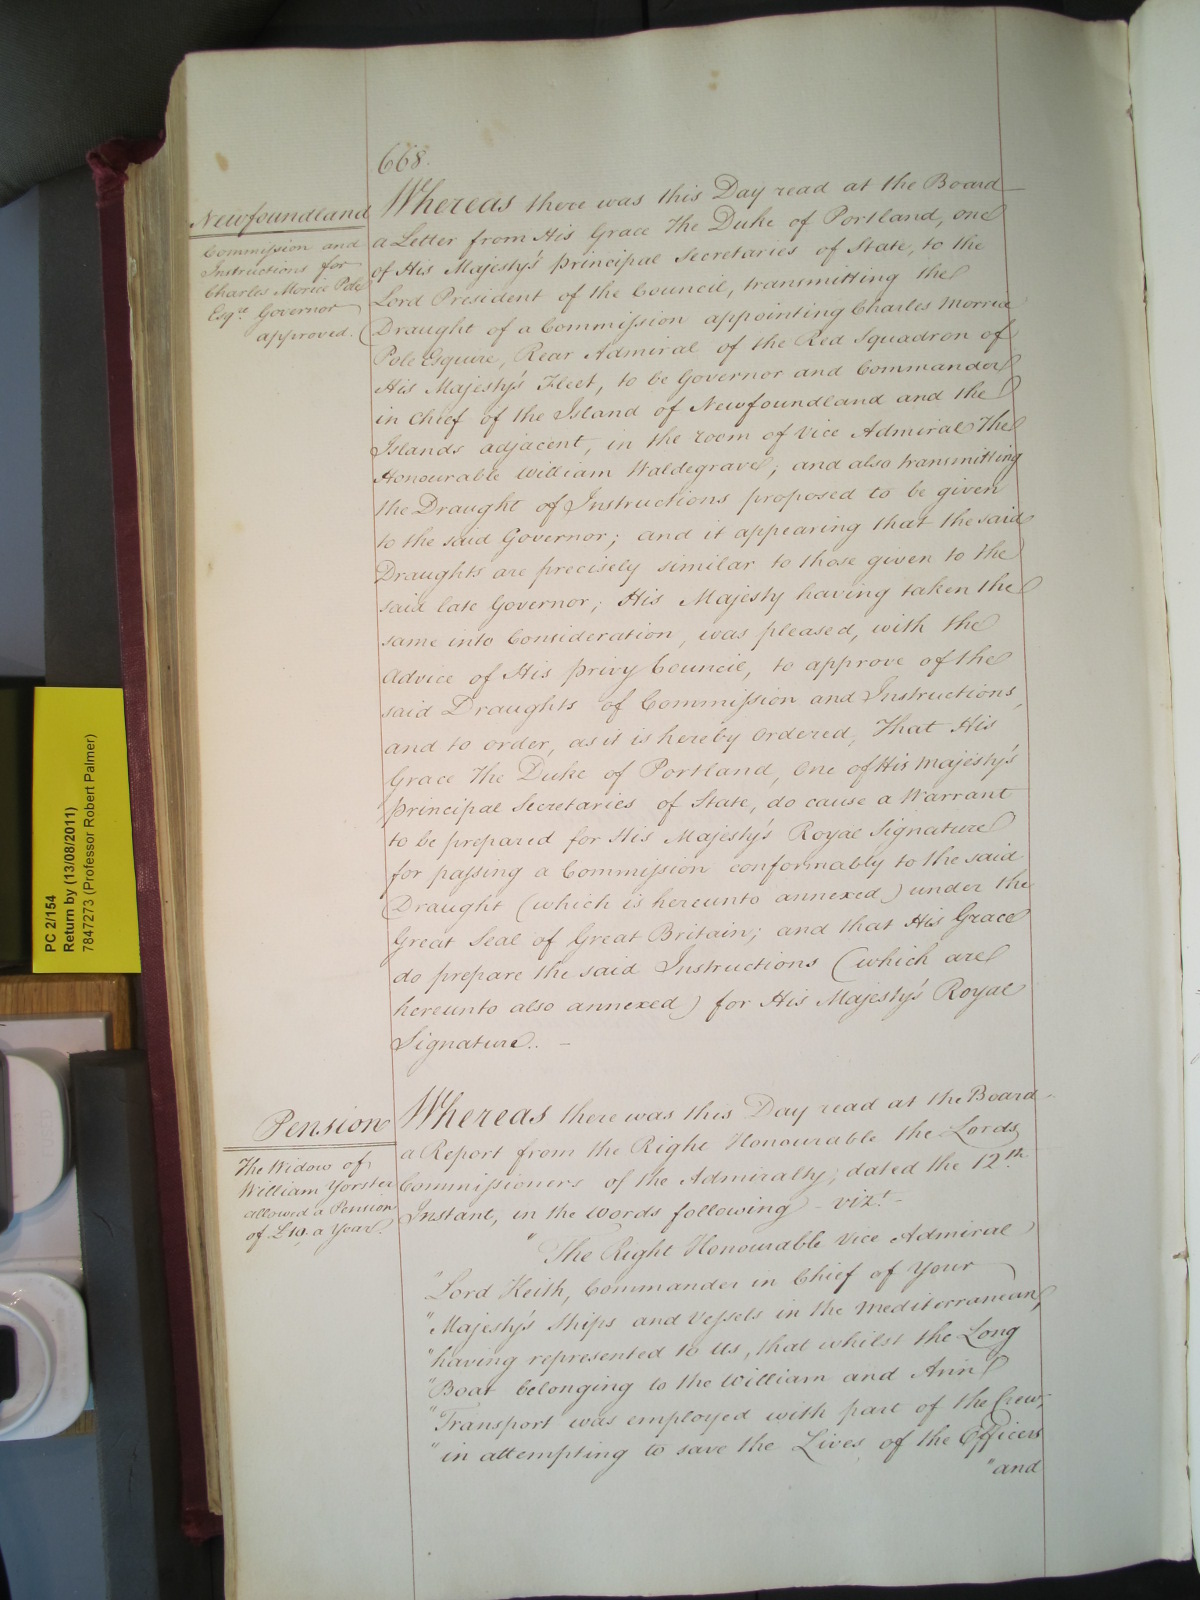 668.
Newfoundland
Commission and
Instructions for
Charles Morice Pole
Esqre. Governor
approved.
Whereas there was this Day read at the Board
a Letter from His Grace The Duke of Portland, one
of His Majesty's Principal Secretaries of State, to the
Lord President of the Council, transmitting the
Draught of a Commission appointing Charles Morrice
Pole Esquire, Rear Admiral of the Red Squadron of
His Majesty's Fleet, to be Governor and Commander
in Chief of the Island of Newfoundland and the
Islands adjacent, in the room of Vice Admiral The
Honourable William Waldegrave; and also transmitting
the Draught of Instructions proposed to be given
to the said Governor; and it appearing that the said
Draughts are precisely similar to those given to the
said late Governor; His Majesty having taken the
same into Consideration, was pleased, with the
Advice of His Privy Council, to approve of the
said Draughts of Commission and Instructions,
and to order, as it is hereby Ordered, That His
Grace The Duke of Portland, One of His Majesty's
Principal Secretaries of State, do cause a Warrant
to be prepared for His Majesty's Royal Signature
for passing a Commission conformably to the said
Draught (which is hereunto annexed) under the
Great Seal of Great Britain; and that His Grace
do prepare the said Instructions (which are
hereunto also annexed) for His Majesty's Royal
Signature..—
Pension
The Widow of
William Yorster
allowed a Pension
of £10, a Year.
Whereas there was this Day read at the Board
a Report from the Right Honourable the Lords
Commissioners of the Admiralty; dated the 12th.
Instant, in the words following - vizt.-
"The Right Honourable Vice Admiral
"Lord Keith, Commander in Chief of Your
"Majesty's Ships and Vessels in the Mediterranean,
"having represented to Us, that whilst the Long
"Boat belonging to the William and Ann
"Transport was employed with part of the Crew,
"in attempting to save the Lives, of the Officers
"and
PC 2/154
Return by (13/08/2011)
7847273 (Professor Robert Palmer)